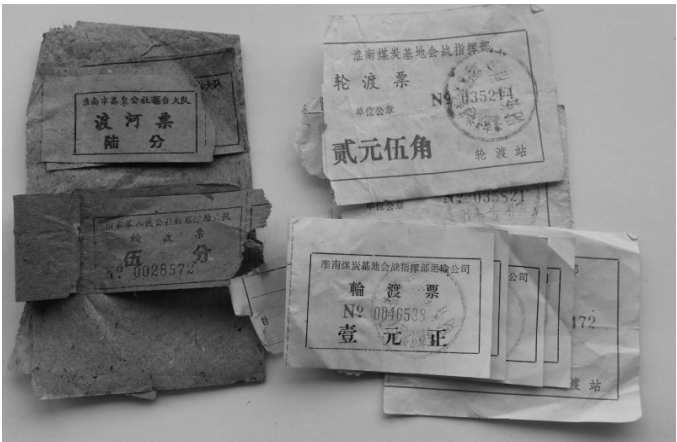 淮南市
公社
大队
渡河票
陆 分
大队
人民公社
大队
轮 渡 票
伍 分
№ 0028572
淮南煤炭基地会战指挥部
轮渡票
№ 035214
单位公章
贰元伍角
轮渡站
№ 035821
单位公章
淮南煤炭基地会战指挥部运输公司
輪 渡 票
№ 0046538
壹 元 正
公司
部
172
渡 站